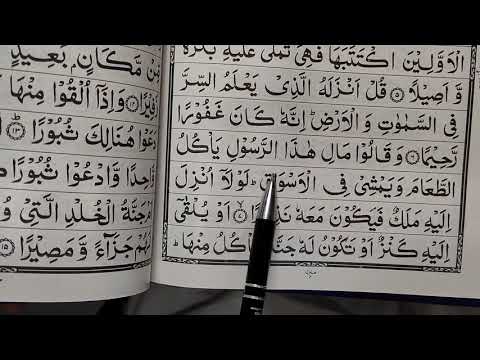 الْاَوَّلِیْنَ اكْتَتَبَهَا فَهِیَ تُمْلٰى عَلَیْهِ بُكْرَةً
وَّ اَصِیْلًا ۝۵ قُلْ اَنْزَلَهُ الَّذِیْ یَعْلَمُ السِّرَّ
فِی السَّمٰوٰتِ وَ الْاَرْضِ ؕ اِنَّهٗ كَانَ غَفُوْرًا
رَّحِیْمًا ۝۶ وَ قَالُوْا مَالِ هٰذَا الرَّسُوْلِ یَاْكُلُ
الطَّعَامَ وَ یَمْشِیْ فِی الْاَسْوَاقِ ؕ لَوْلَاۤ اُنْزِلَ
اِلَیْهِ مَلَكٌ فَیَكُوْنَ مَعَهٗ ۝۷ اَوْ یُلْقٰۤى
اِلَیْهِ كَنْزٌ اَوْ تَكُوْنُ لَهٗ مِنْهَا ؕ
مِنْ مَّكَانٍۭ بَعِیْدٍ
زَفِیْرًا ۝۱۲ وَ اِذَاۤ اُلْقُوْا مِنْهَا
دَعَوْا هُنَالِكَ ثُبُوْرًا ؕ ۝۱۳
وَّاحِدًا وَّ ادْعُوْا ثُبُوْرًا
جَنَّةُ الْخُلْدِ الَّتِیْ
لَهُمْ جَزَآءً وَّ مَصِیْرًا ۝۱۵